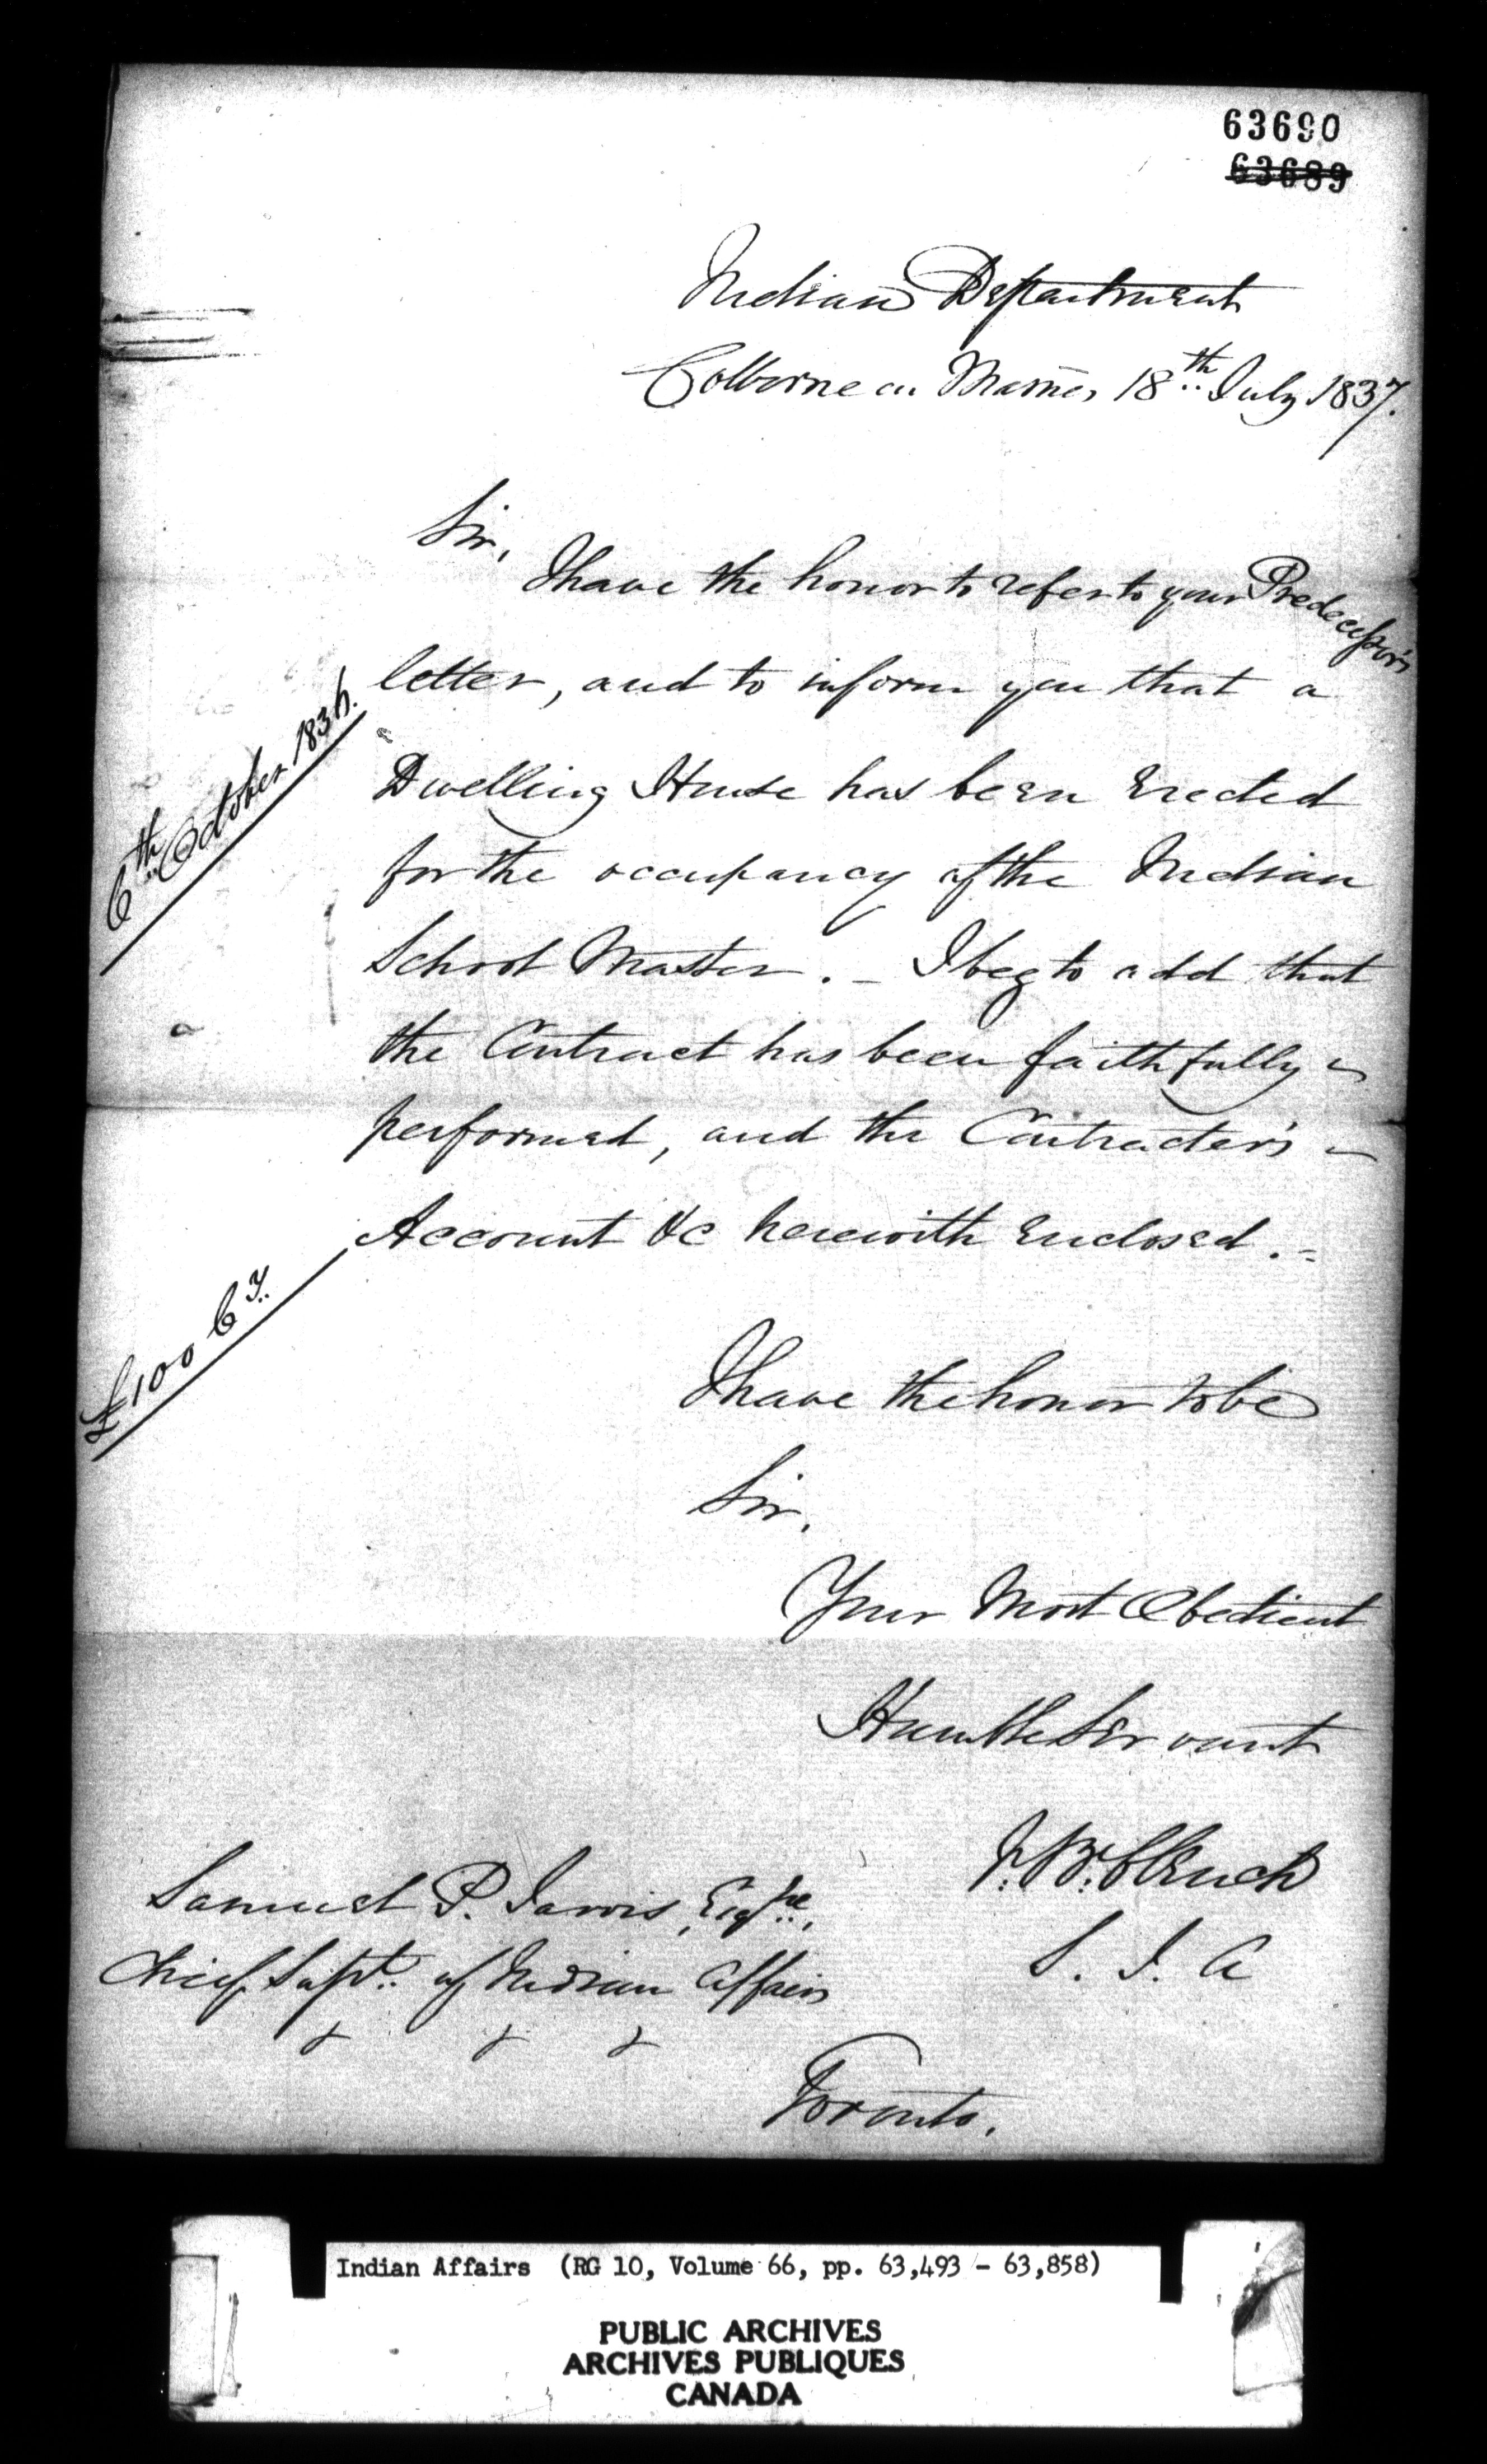 63690
63689
Indian Department
Colborne on Thames 18th July 1837.
Sir,
I have the honor to refer to your Predecessor's
letter, and to inform you that a
6th October 1836.
Dwelling House has been Erected
for the occupancy of the Indian
School Master. — I beg to add that
the Contract has been faithfully
performed, and the Contracter's
Account &c herewith Enclosed. =
£100 Cy.
I have the honor to be
Sir,
Your Most Obedient
Humble Servant
J. B. Clench
S. I. A
Samuel P. Jarvis, Esqre.,
Chief Supt. of Indian Affairs
& & &
Toronto.
Indian Affairs (RG 10, Volume 66, pp. 63,493 - 63,858)
PUBLIC ARCHIVES
ARCHIVES PUBLIQUES
CANADA